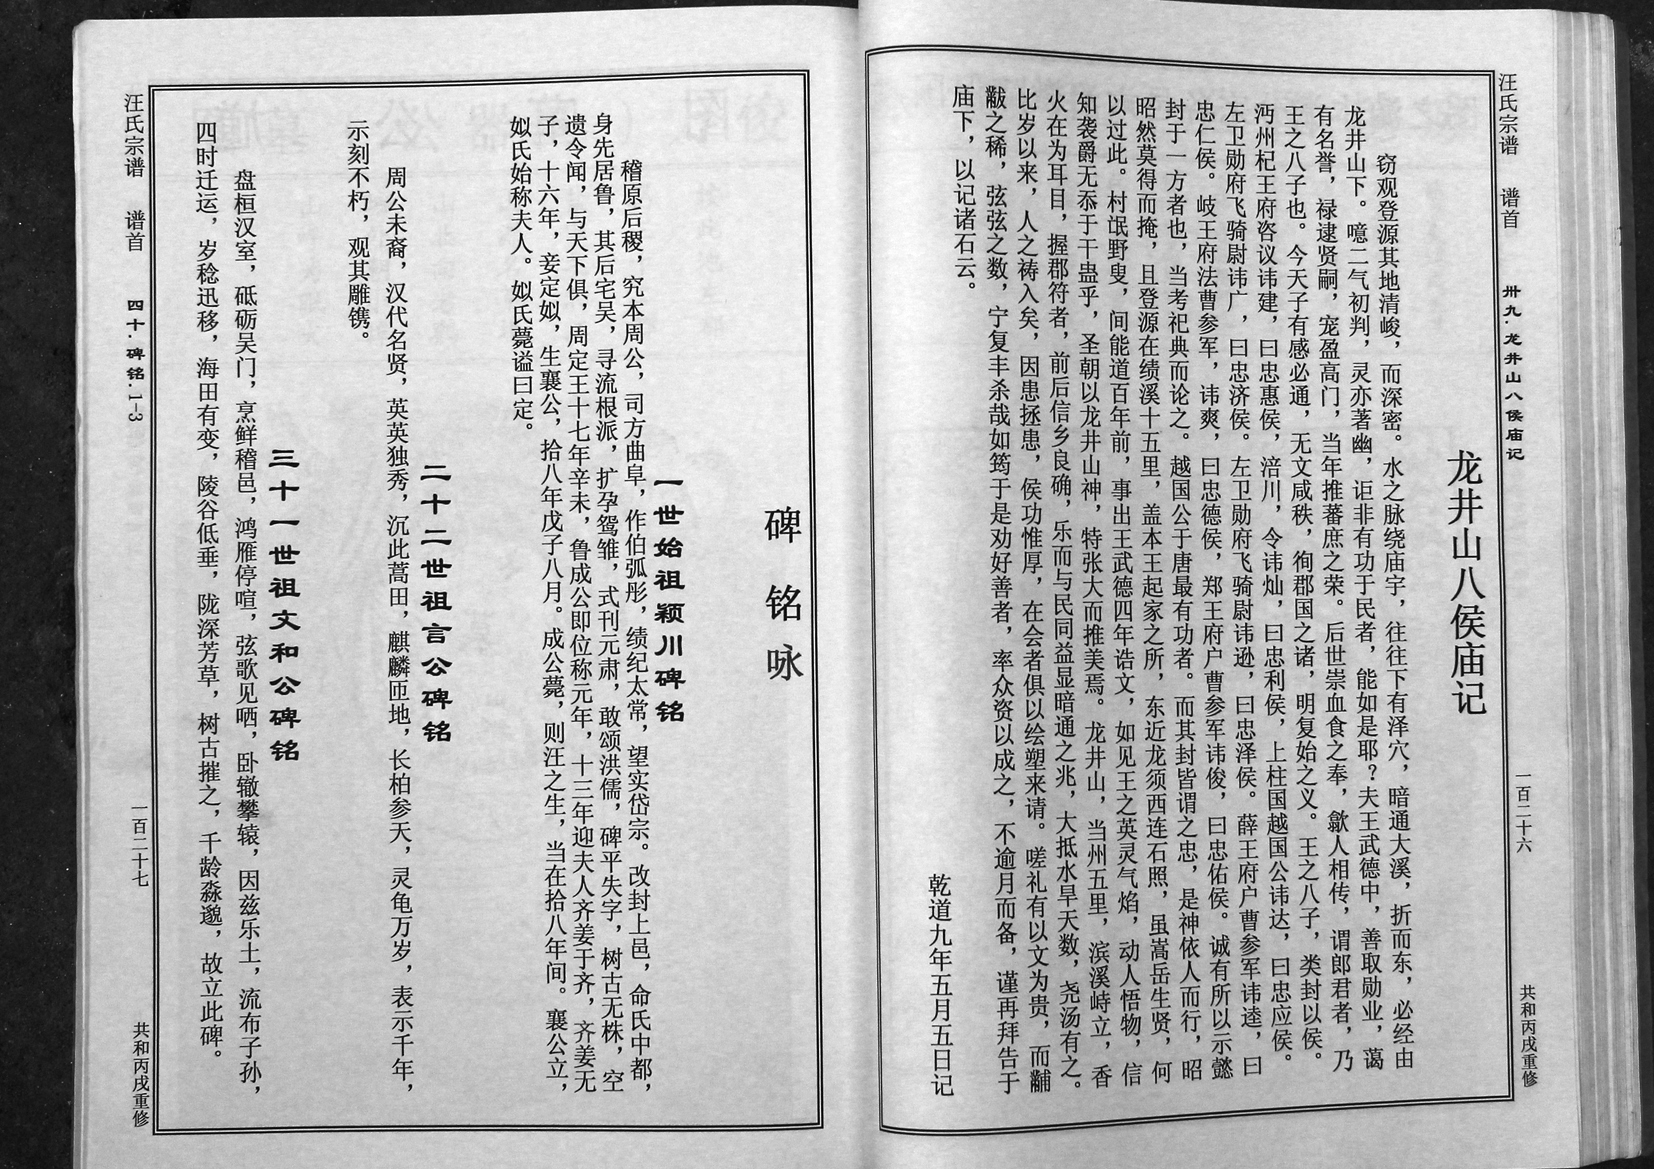 汪氏宗谱 谱首 卅九·龙井山八侯庙记 一百二十六 共和丙戌重修
龙井山八侯庙记
窃观登源其地清峻，而深密。水之脉绕庙宇，往往下有泽穴，暗通大溪，折而东，必经由
龙井山下。噫二气初判，灵亦著幽，讵非有功于民者，能如是耶？夫王武德中，善取勋业，蔼
有名誉，禄逮贤嗣，宠盈高门，当年推蕃庶之荣。后世崇血食之奉，歙人相传，谓郎君者，乃
王之八子也。今天子有感必通，无文咸秩，徇郡国之诸，明复始之义。王之八子，类封以侯。
沔州杞王府咨议讳建，曰忠惠侯，涪川，令讳灿，曰忠利侯，上柱国越国公讳达，曰忠应侯。
左卫勋府飞骑尉讳广，曰忠济侯。左卫勋府飞骑尉讳逊，曰忠泽侯。薛王府户曹参军讳逵，曰
忠仁侯。岐王府法曹参军，讳爽，曰忠德侯，郑王府户曹参军讳俊，曰忠佑侯。诚有所以示懿
封于一方者也，当考祀典而论之。越国公于唐最有功者。而其封皆谓之忠，是神依人而行，昭
昭然莫得而掩，且登源在绩溪十五里，盖本王起家之所，东近龙须西连石照，虽嵩岳生贤，何
以过此。村氓野叟，间能道百年前，事出王武德四年诰文，如见王之英灵气焰，动人悟物，信
知袭爵无忝于干蛊乎，圣朝以龙井山神，特张大而推美焉。龙井山，当州五里，滨溪峙立，香
火在为耳目，握郡符者，前后信乡良确，乐而与民同益显暗通之兆，大抵水旱天数，尧汤有之。
比岁以来，人之祷入矣，因患拯患，侯功惟厚，在会者俱以绘塑来请。嗟礼有以文为贵，而黼
黻之稀，弦弦之数，宁复丰杀哉如筠于是劝好善者，率众资以成之，不逾月而备，谨再拜告于
庙下，以记诸石云。
乾道九年五月五日记
碑铭咏
一世始祖颖川碑铭
稽原后稷，究本周公，司方曲阜，作伯弧彤，绩纪太常，望实岱宗。改封上邑，命氏中都，
身先居鲁，其后宅吴，寻流根派，扩孕鸳雏，式刊元肃，敢颂洪儒，碑平失字，树古无株，空
遗令闻，与天下俱，周定王十七年辛未，鲁成公即位称元年，十三年迎夫人齐姜于齐，齐姜无
子，十六年，妾定姒，生襄公，拾八年戊子八月。成公薨，则汪之生，当在拾八年间。襄公立，
姒氏始称夫人。姒氏薨谥曰定。
二十二世祖言公碑铭
周公末裔，汉代名贤，英英独秀，沉此蒿田，麒麟匝地，长柏参天，灵龟万岁，表示千年，
示刻不朽，观其雕镌。
三十一世祖文和公碑铭
盘桓汉室，砥砺吴门，烹鲜稽邑，鸿雁停喧，弦歌见哂，卧辙攀辕，因兹乐土，流布子孙，
四时迁运，岁稔迅移，海田有变，陵谷低垂，陇深芳草，树古摧之，千龄淼邈，故立此碑。
汪氏宗谱 谱首 四十·碑铭·1-3 一百二十七 共和丙戌重修